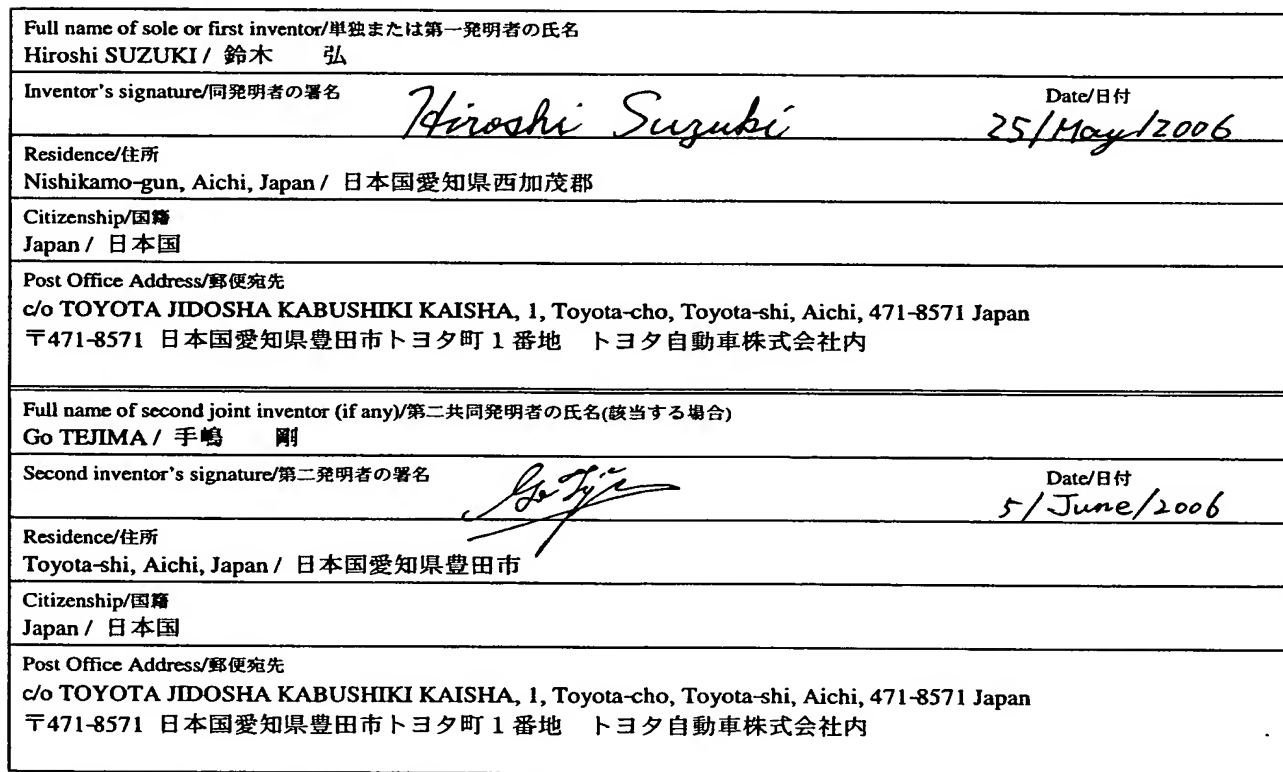 Full name of sole or first inventor/単独または第一発明者の氏名
Hiroshi SUZUKI / 鈴木 弘
Inventor's signature/同発明者の署名 Hiroshi Suzuki Date/日付 25/May/2006
Residence/住所
Nishikamo-gun, Aichi, Japan / 日本国愛知県西加茂郡
Citizenship/国籍
Japan / 日本国
Post Office Address/郵便宛先
c/o TOYOTA JIDOSHA KABUSHIKI KAISHA, 1, Toyota-cho, Toyota-shi, Aichi, 471-8571 Japan
〒471-8571 日本国愛知県豊田市トヨタ町1番地 トヨタ自動車株式会社内
Full name of second joint inventor (if any)/第二共同発明者の氏名(該当する場合)
Go TEJIMA / 手嶋 剛
Second inventor's signature/第二発明者の署名 Date/日付 5/June/2006
Residence/住所
Toyota-shi, Aichi, Japan / 日本国愛知県豊田市
Citizenship/国籍
Japan / 日本国
Post Office Address/郵便宛先
c/o TOYOTA JIDOSHA KABUSHIKI KAISHA, 1, Toyota-cho, Toyota-shi, Aichi, 471-8571 Japan
〒471-8571 日本国愛知県豊田市トヨタ町1番地 トヨタ自動車株式会社内